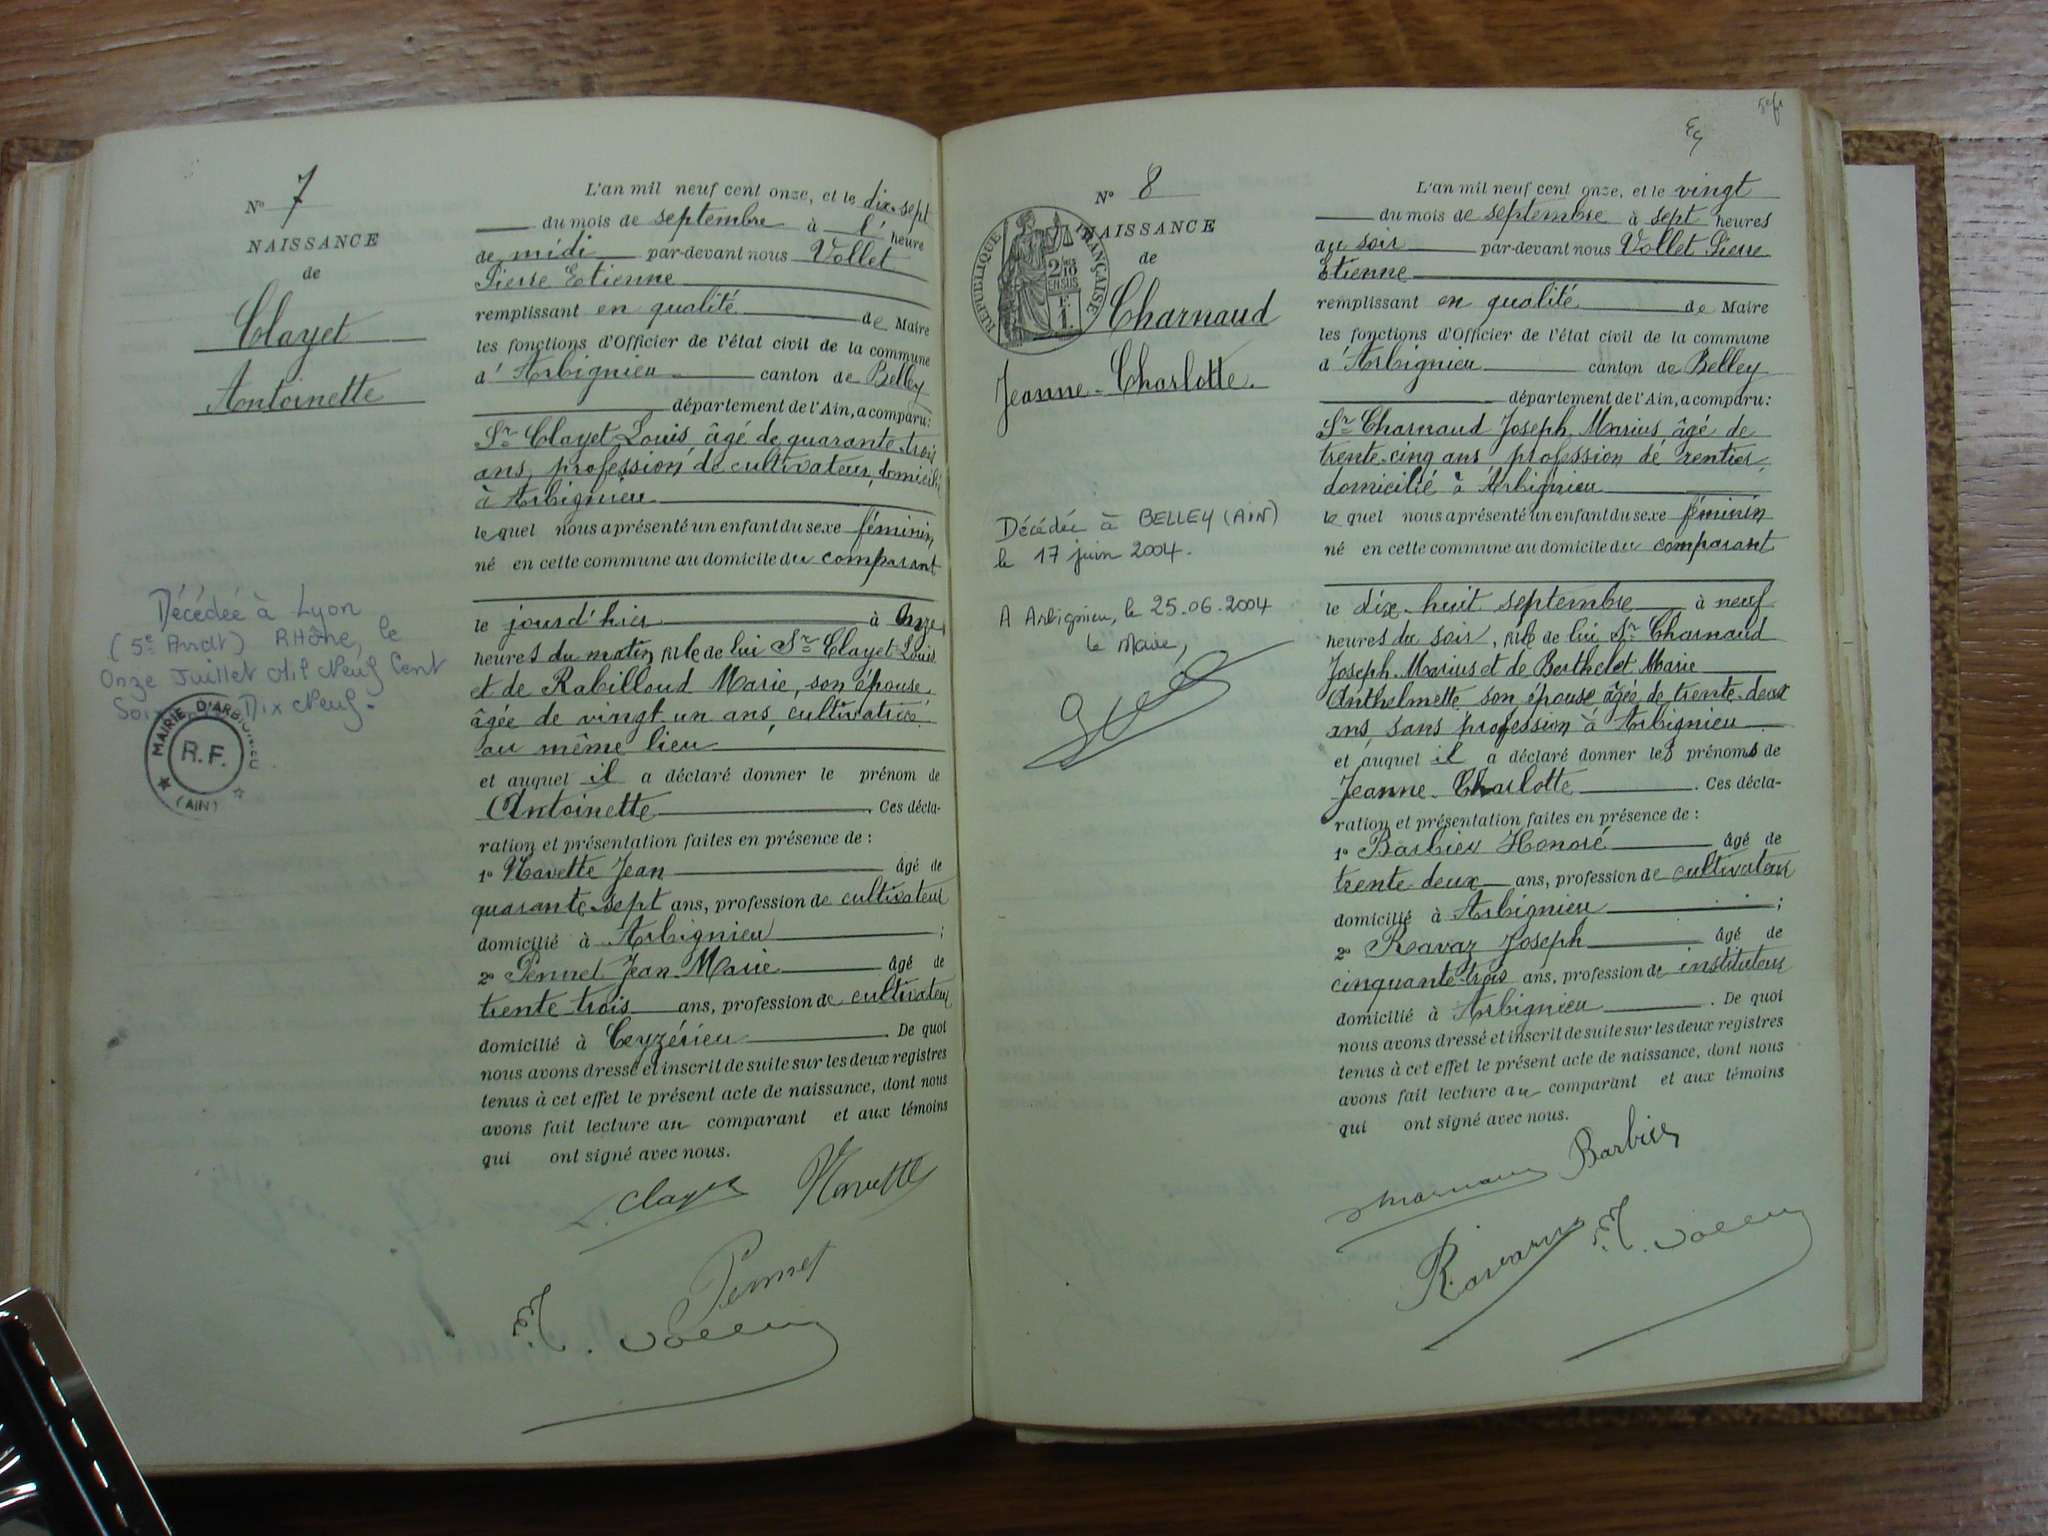 N° 7
NAISSANCE
de
Clayet
Antoinette
Décédée à Lyon
(5e Arrdt) Rhône, le
Onze Juillet Mil Neuf Cent
Soixante Dix Neuf.
MAIRIE D'ARBIGNIEU
R.F.
(AIN)
L'an mil neuf cent onze, et le dix-sept
du mois de septembre à l' heure
de midi par-devant nous Vollet
Pierre Etienne
remplissant en qualité de Maire
les fonctions d'Officier de l'état civil de la commune
d'Arbignieu canton de Belley
département de l'Ain, a comparu:
Sr Clayet Louis âgé de quarante-trois
ans, profession de cultivateur, domicilié
à Arbignieu
lequel nous a présenté un enfant du sexe féminin
né en cette commune au domicile du comparant
le jour d'hier à Onze
heures du matin, fille de lui Sr Clayet Louis
et de Rabilloud Marie, son épouse,
âgée de vingt un ans, cultivatrice
au même lieu
et auquel il a déclaré donner le prénom de
Antoinette. Ces décla-
ration et présentation faites en présence de :
1° Navette Jean âgé de
quarante-sept ans, profession de cultivateur
domicilié à Arbignieu ;
2° Pennet Jean-Marie âgé de
trente trois ans, profession de cultivateur
domicilié à Ceyzérieu. De quoi
nous avons dressé et inscrit de suite sur les deux registres
tenus à cet effet le présent acte de naissance, dont nous
avons fait lecture au comparant et aux témoins
qui ont signé avec nous.
Clayet Navette
Pennet
E. Vollet
5e f.
N° 8
REPUBLIQUE FRANÇAISE
2/10 EN SUS
NAISSANCE
de
Charnaud
Jeanne-Charlotte.
Décédée à BELLEY (AIN)
le 17 juin 2004.
A Arbignieu, le 25.06.2004
le Maire,
L'an mil neuf cent onze, et le vingt
du mois de septembre à sept heures
du soir par-devant nous Vollet Pierre
Etienne
remplissant en qualité de Maire
les fonctions d'Officier de l'état civil de la commune
d'Arbignieu canton de Belley
département de l'Ain, a comparu:
Sr Charnaud Joseph, Marius âgé de
trente-cinq ans profession de rentier,
domicilié à Arbignieu
lequel nous a présenté un enfant du sexe féminin
né en cette commune au domicile du comparant
le dix-huit septembre à neuf
heures du soir, fille de lui Sr Charnaud
Joseph-Marius et de Berthelot Marie
Anthelmette son épouse, âgée de trente-deux
ans, sans profession à Arbignieu
et auquel il a déclaré donner les prénoms de
Jeanne-Charlotte. Ces décla-
ration et présentation faites en présence de :
1° Barbier Honoré âgé de
trente-deux ans, profession de cultivateur
domicilié à Arbignieu ;
2° Ravaz Joseph âgé de
cinquante-trois ans, profession de instituteur
domicilié à Arbignieu. De quoi
nous avons dressé et inscrit de suite sur les deux registres
tenus à cet effet le présent acte de naissance, dont nous
avons fait lecture au comparant et aux témoins
qui ont signé avec nous.
Charnaud Barbier
Ravaz E. Vollet